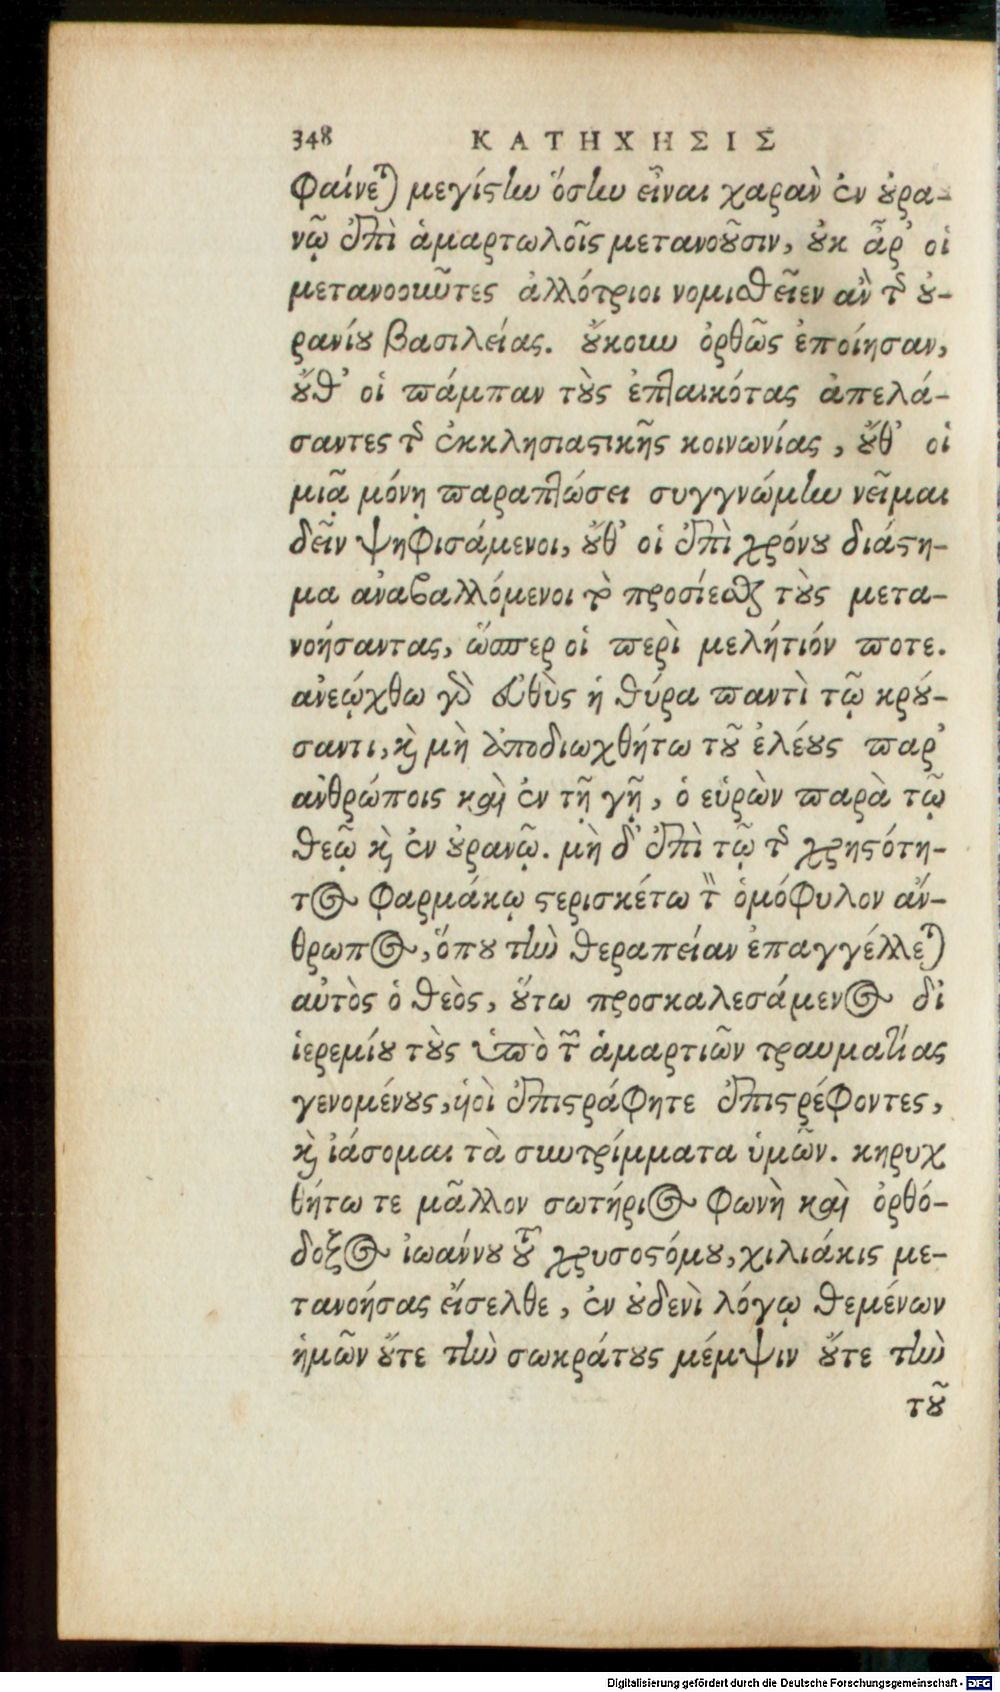 348 ΚΑΤΗΧΗΣΙΣ
φαίνεται) μεγίστην ὅσην εἶναι χαρὰν ἐν οὐρα-
νῷ ἐπὶ ἁμαρτωλοῖς μετανοοῦσιν, οὐκ ἆρ' οἱ
μετανοοῦντες ἀλλότριοι νομισθεῖεν ἂν τῆς οὐ-
ρανίου βασιλείας. οὔκουν ὀρθῶς ἐποίησαν,
οὔθ' οἱ πάμπαν τοὺς ἐπταικότας ἀπελά-
σαντες τῆς ἐκκλησιαστικῆς κοινωνίας, οὔθ' οἱ
μιᾷ μόνῃ παραπτώσει συγγνώμην νεῖμαι
δεῖν ψηφισάμενοι, οὔθ' οἱ ἐπὶ χρόνου διάστη-
μα ἀναβαλλόμενοι τὸ προσίεσθαι τοὺς μετα-
νοήσαντας, ὥσπερ οἱ περὶ μελήτιόν ποτε.
ἀνεῴχθω γὰρ εὐθὺς ἡ θύρα παντὶ τῷ κρού-
σαντι, καὶ μὴ ἀποδιωχθήτω τοῦ ἐλέους παρ'
ἀνθρώποις καὶ ἐν τῇ γῇ, ὁ εὑρὼν παρὰ τῷ
θεῷ καὶ ἐν οὐρανῷ. μὴ δ' ἐπὶ τῷ τῆς χρηστότη-
τος φαρμάκῳ στερισκέτω τὸν ὁμόφυλον ἄν-
θρωπος, ὅπου τὴν θεραπείαν ἐπαγγέλλεται
αὐτὸς ὁ θεὸς, οὕτω προσκαλεσάμενος δι'
ἱερεμίου τοὺς ὑπὸ τῶν ἁμαρτιῶν τραυματίας
γενομένους, υἱοὶ ἐπιστράφητε ἐπιστρέφοντες,
καὶ ἰάσομαι τὰ συντρίμματα ὑμῶν. κηρυχ
θήτω τε μᾶλλον σωτήριος φωνὴ καὶ ὀρθό-
δοξος ἰωάννου τοῦ χρυσοστόμου, χιλιάκις με-
τανοήσας εἴσελθε, ἐν οὐδενὶ λόγῳ θεμένων
ἡμῶν οὔτε τὴν σωκράτους μέμψιν οὔτε τὴν
τοῦ
Digitalisierung gefördert durch die Deutsche Forschungsgemeinschaft - DFG